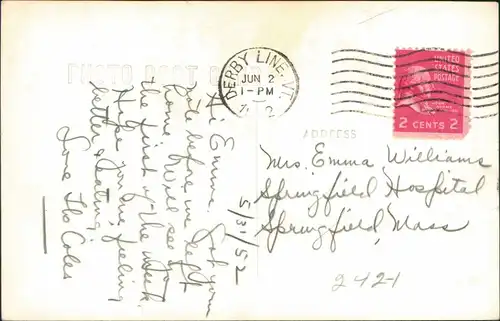 PHOTO POST CARD
DERBY LINE, VT.
JUN 2
1-PM
UNITED
STATES
POSTAGE
2 CENTS 2
ADDRESS
Hi Emma. Got your
note before we left
home. Will see you
the first of the week.
Hope you are feeling
better & eating.
Love The Coles
5/31/52
Mrs. Emma Williams
Springfield Hospital
Springfield, Mass
2421